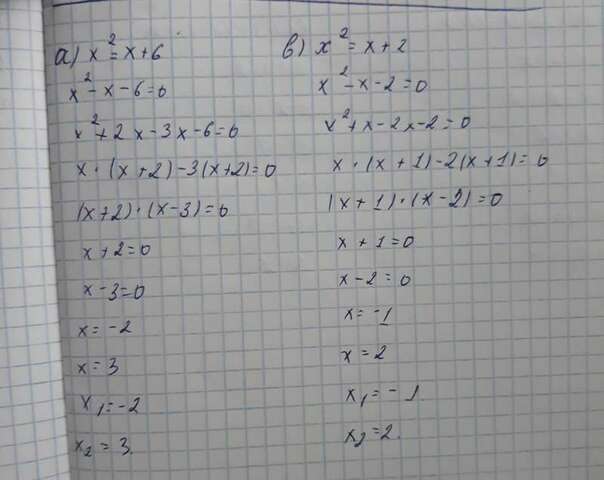 а) x² = x + 6
x² - x - 6 = 0
x² + 2x - 3x - 6 = 0
x · (x + 2) - 3(x + 2) = 0
(x + 2) · (x - 3) = 0
x + 2 = 0
x - 3 = 0
x = -2
x = 3
x₁ = -2
x₂ = 3.
в) x² = x + 2
x² - x - 2 = 0
x² + x - 2x - 2 = 0
x · (x + 1) - 2(x + 1) = 0
(x + 1) · (x - 2) = 0
x + 1 = 0
x - 2 = 0
x = -1
x = 2
x₁ = -1
x₂ = 2.